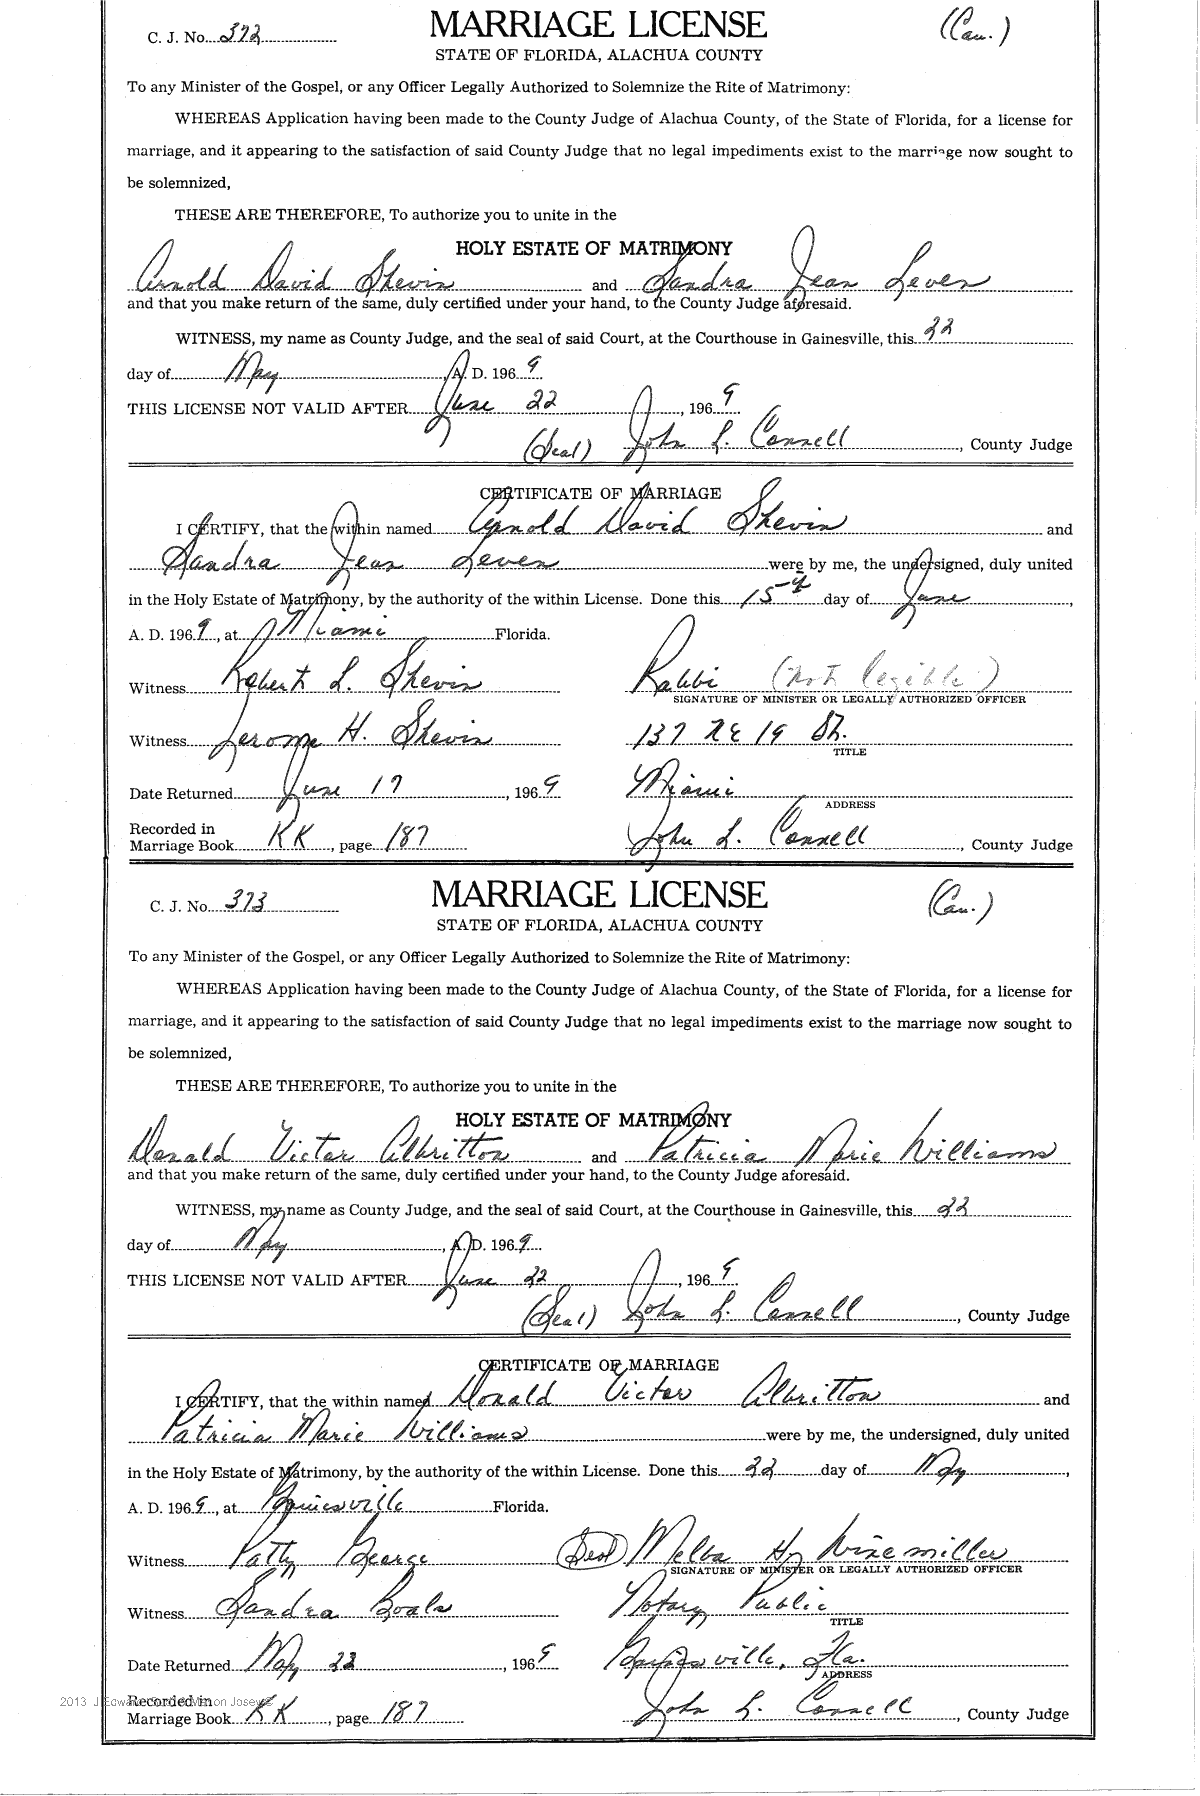 C. J. No. 372 MARRIAGE LICENSE (Cau.)
STATE OF FLORIDA, ALACHUA COUNTY
To any Minister of the Gospel, or any Officer Legally Authorized to Solemnize the Rite of Matrimony:
WHEREAS Application having been made to the County Judge of Alachua County, of the State of Florida, for a license for
marriage, and it appearing to the satisfaction of said County Judge that no legal impediments exist to the marriage now sought to
be solemnized,
THESE ARE THEREFORE, To authorize you to unite in the
HOLY ESTATE OF MATRIMONY
Arnold David Shevin and Sandra Jean Leven
and that you make return of the same, duly certified under your hand, to the County Judge aforesaid.
WITNESS, my name as County Judge, and the seal of said Court, at the Courthouse in Gainesville, this 22
day of May, A. D. 1969
THIS LICENSE NOT VALID AFTER June 22, 1969
(Seal) John L. Connell, County Judge
CERTIFICATE OF MARRIAGE
I CERTIFY, that the within named Arnold David Shevin and
Sandra Jean Leven were by me, the undersigned, duly united
in the Holy Estate of Matrimony, by the authority of the within License. Done this 15th day of June,
A. D. 1969, at Miami Florida.
Witness Robert L. Shevin Rabbi (not legible)
SIGNATURE OF MINISTER OR LEGALLY AUTHORIZED OFFICER
Witness Jerome H. Shevin 137 NE 19 St.
TITLE
Date Returned June 17, 1969 Miami
ADDRESS
Recorded in
Marriage Book KK, page 187 John L. Connell, County Judge
C. J. No. 373 MARRIAGE LICENSE (Cau.)
STATE OF FLORIDA, ALACHUA COUNTY
To any Minister of the Gospel, or any Officer Legally Authorized to Solemnize the Rite of Matrimony:
WHEREAS Application having been made to the County Judge of Alachua County, of the State of Florida, for a license for
marriage, and it appearing to the satisfaction of said County Judge that no legal impediments exist to the marriage now sought to
be solemnized,
THESE ARE THEREFORE, To authorize you to unite in the
HOLY ESTATE OF MATRIMONY
Donald Victor Albritton and Patricia Marie Williams
and that you make return of the same, duly certified under your hand, to the County Judge aforesaid.
WITNESS, my name as County Judge, and the seal of said Court, at the Courthouse in Gainesville, this 22
day of May, A. D. 1969
THIS LICENSE NOT VALID AFTER June 22, 1969
(Seal) John L. Connell, County Judge
CERTIFICATE OF MARRIAGE
I CERTIFY, that the within named Donald Victor Albritton and
Patricia Marie Williams were by me, the undersigned, duly united
in the Holy Estate of Matrimony, by the authority of the within License. Done this 22 day of May,
A. D. 1969, at Gainesville Florida.
Witness Patty George (Seal) Melba H. Winemiller
SIGNATURE OF MINISTER OR LEGALLY AUTHORIZED OFFICER
Witness Sandra Boals Notary Public
TITLE
Date Returned May 22, 1969 Gainesville, Fla.
ADDRESS
Recorded in
Marriage Book KK, page 187 John L. Connell, County Judge
2013